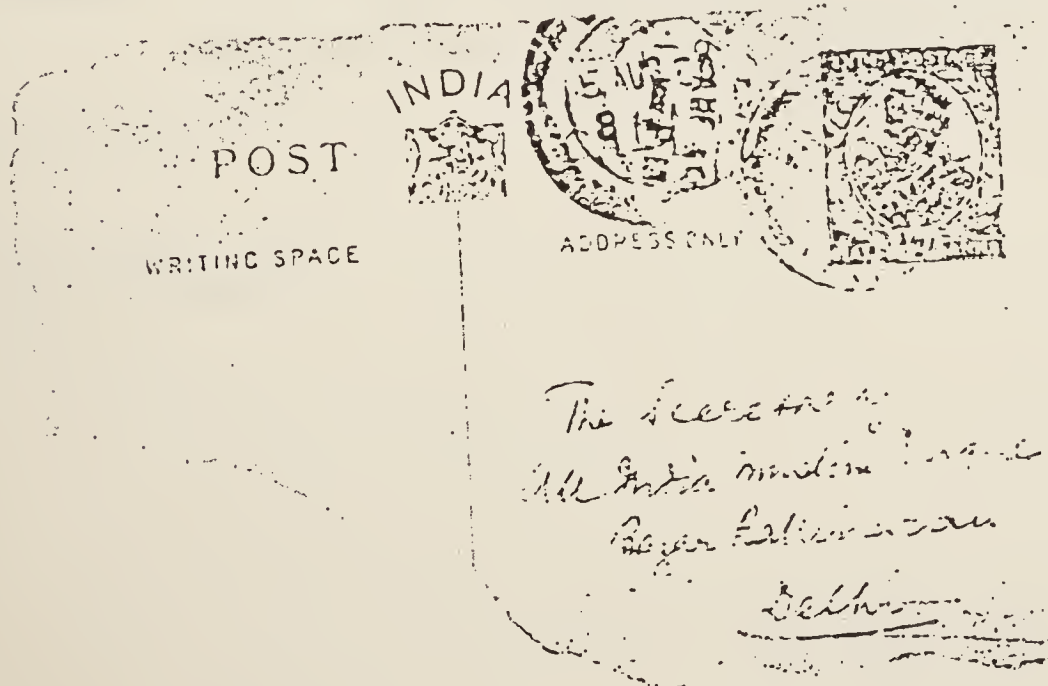 INDIA
POST
WRITING SPACE
ADDRESS ONLY
The Secretary,
All India Muslim League
Delhi